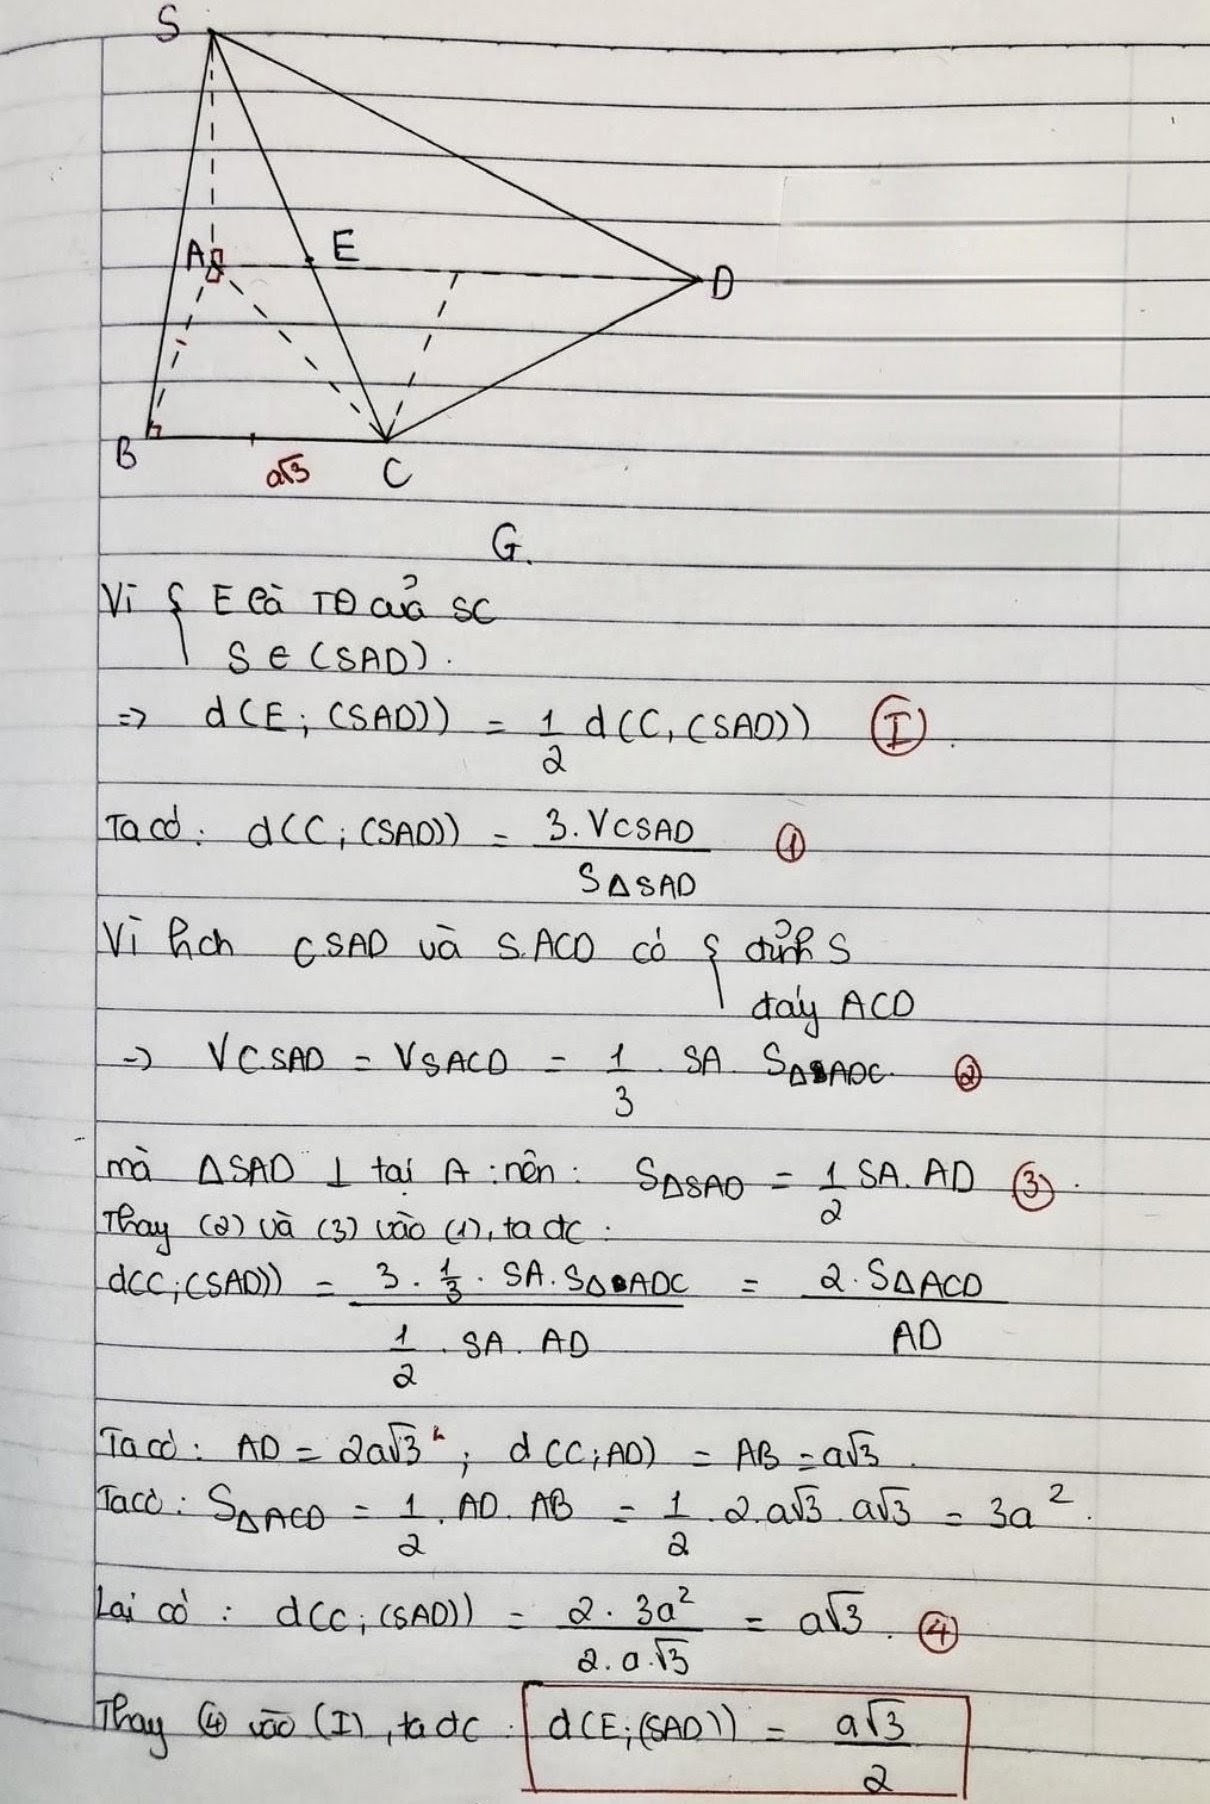 S
A
E
D
B
a√3
C
G.
Vì { E là TĐ của SC
S ∈ (SAD).
=> d(E; (SAD)) = 1/2 d(C, (SAD)) (I).
Ta có: d(C; (SAD)) = 3.VCSAD / SΔSAD (1)
Vì hch C.SAD và S.ACD có { đỉnh S
đáy ACD
=> VC.SAD = VSACD = 1/3 . SA. SΔADC. (2)
mà ΔSAD ⊥ tại A :nên: SΔSAD = 1/2 SA. AD (3).
Thay (2) và (3) vào (1), ta đc :
d(C;(SAD)) = (3 . 1/3 . SA. SΔADC) / (1/2 . SA. AD) = 2. SΔACD / AD
Ta có: AD = 2a√3 ; d(C;AD) = AB = a√3.
Ta có: SΔACD = 1/2 . AD. AB = 1/2 . 2.a√3. a√3 = 3a².
Lại có : d(C;(SAD)) = 2. 3a² / 2.a.√3 = a√3. (4)
Thay (4) vào (I), ta đc : d(E;(SAD)) = a√3 / 2